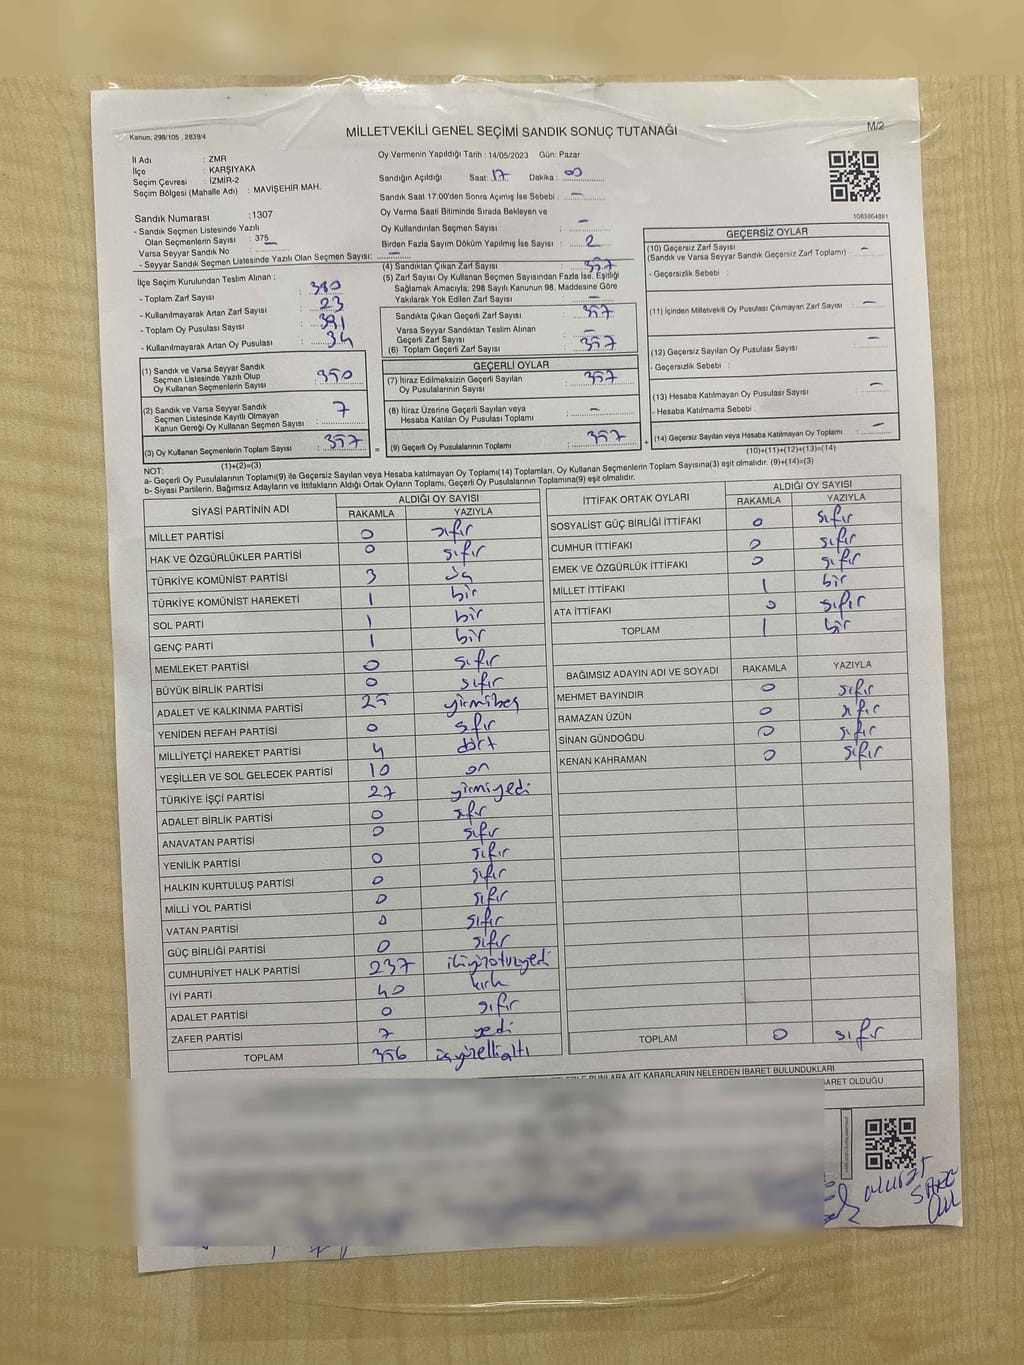 Kanun, 298/105, 2839/4
MİLLETVEKİLİ GENEL SEÇİMİ SANDIK SONUÇ TUTANAĞI
M/2
İl Adı : ZMR
İlçe : KARŞIYAKA
Seçim Çevresi : İZMİR-2
Seçim Bölgesi (Mahalle Adı) : MAVİŞEHİR MAH.
Oy Vermenin Yapıldığı Tarih : 14/05/2023 Gün: Pazar
Sandığın Açıldığı Saat: 17 Dakika : 00
Sandık Saat 17:00'den Sonra Açımış İse Sebebi : -
Oy Verme Saati Bitiminde Sırada Bekleyen ve
Oy Kullandırılan Seçmen Sayısı : -
Birden Fazla Sayım Döküm Yapılmış İse Sayısı : 2
1083864881
Sandık Numarası : 1307
- Sandık Seçmen Listesinde Yazılı
Olan Seçmenlerin Sayısı : 375
Varsa Seyyar Sandık No : -
- Seyyar Sandık Seçmen Listesinde Yazılı Olan Seçmen Sayısı: -
İlçe Seçim Kurulundan Teslim Alınan :
- Toplam Zarf Sayısı : 380
- Kullanılmayarak Artan Zarf Sayısı : 23
- Toplam Oy Pusulası Sayısı : 391
- Kullanılmayarak Artan Oy Pusulası : 34
(1) Sandık ve Varsa Seyyar Sandık
Seçmen Listesinde Yazılı Olup
Oy Kullanan Seçmenlerin Sayısı : 350
(2) Sandık ve Varsa Seyyar Sandık
Seçmen Listesinde Kayıtlı Olmayan
Kanun Gereği Oy Kullanan Seçmen Sayısı : 7
(3) Oy Kullanan Seçmenlerin Toplam Sayısı : 357
(1)+(2)=(3)
(4) Sandıktan Çıkan Zarf Sayısı : 357
(5) Zarf Sayısı Oy Kullanan Seçmen Sayısından Fazla İse, Eşitliği
Sağlamak Amacıyla; 298 Sayılı Kanunun 98. Maddesine Göre
Yakılarak Yok Edilen Zarf Sayısı : -
Sandıkta Çıkan Geçerli Zarf Sayısı : 357
Varsa Seyyar Sandıktan Teslim Alınan
Geçerli Zarf Sayısı : -
(6) Toplam Geçerli Zarf Sayısı : 357
GEÇERLİ OYLAR
(7) İtiraz Edilmeksizin Geçerli Sayılan
Oy Pusulalarının Sayısı : 357
(8) İtiraz Üzerine Geçerli Sayılan veya
Hesaba Katılan Oy Pusulası Toplamı : -
= (9) Geçerli Oy Pusulalarının Toplamı : 357 +
GEÇERSİZ OYLAR
(10) Geçersiz Zarf Sayısı : -
(Sandık ve Varsa Seyyar Sandık Geçersiz Zarf Toplamı)
- Geçersizlik Sebebi :
(11) İçinden Milletvekili Oy Pusulası Çıkmayan Zarf Sayısı : -
(12) Geçersiz Sayılan Oy Pusulası Sayısı : -
- Geçersizlik Sebebi :
(13) Hesaba Katılmayan Oy Pusulası Sayısı : -
- Hesaba Katılmama Sebebi :
(14) Geçersiz Sayılan veya Hesaba Katılmayan Oy Toplamı : -
(10)+(11)+(12)+(13)=(14)
NOT:
a- Geçerli Oy Pusulalarının Toplamı(9) ile Geçersiz Sayılan veya Hesaba katılmayan Oy Toplamı(14) Toplamları, Oy Kullanan Seçmenlerin Toplam Sayısına(3) eşit olmalıdır. (9)+(14)=(3)
b- Siyasi Partilerin, Bağımsız Adayların ve İttifakların Aldığı Ortak Oyların Toplamı, Geçerli Oy Pusulalarının Toplamına(9) eşit olmalıdır.
SİYASİ PARTİNİN ADI ALDIĞI OY SAYISI
RAKAMLA YAZIYLA
MİLLET PARTİSİ 0 sıfır
HAK VE ÖZGÜRLÜKLER PARTİSİ 0 sıfır
TÜRKİYE KOMÜNİST PARTİSİ 3 üç
TÜRKİYE KOMÜNİST HAREKETİ 1 bir
SOL PARTİ 1 bir
GENÇ PARTİ 1 bir
MEMLEKET PARTİSİ 0 sıfır
BÜYÜK BİRLİK PARTİSİ 0 sıfır
ADALET VE KALKINMA PARTİSİ 25 yirmibeş
YENİDEN REFAH PARTİSİ 0 sıfır
MİLLİYETÇİ HAREKET PARTİSİ 4 dört
YEŞİLLER VE SOL GELECEK PARTİSİ 10 on
TÜRKİYE İŞÇİ PARTİSİ 27 yirmiyedi
ADALET BİRLİK PARTİSİ 0 sıfır
ANAVATAN PARTİSİ 0 sıfır
YENİLİK PARTİSİ 0 sıfır
HALKIN KURTULUŞ PARTİSİ 0 sıfır
MİLLİ YOL PARTİSİ 0 sıfır
VATAN PARTİSİ 0 sıfır
GÜÇ BİRLİĞİ PARTİSİ 0 sıfır
CUMHURİYET HALK PARTİSİ 237 ikiyüzotuzyedi
İYİ PARTİ 40 kırk
ADALET PARTİSİ 0 sıfır
ZAFER PARTİSİ 7 yedi
TOPLAM 356 üçyüzellialtı
İTTİFAK ORTAK OYLARI ALDIĞI OY SAYISI
RAKAMLA YAZIYLA
SOSYALİST GÜÇ BİRLİĞİ İTTİFAKI 0 sıfır
CUMHUR İTTİFAKI 0 sıfır
EMEK VE ÖZGÜRLÜK İTTİFAKI 0 sıfır
MİLLET İTTİFAKI 1 bir
ATA İTTİFAKI 0 sıfır
TOPLAM 1 bir
BAĞIMSIZ ADAYIN ADI VE SOYADI RAKAMLA YAZIYLA
MEHMET BAYINDIR 0 sıfır
RAMAZAN ÜZÜN 0 sıfır
SİNAN GÜNDOĞDU 0 sıfır
KENAN KAHRAMAN 0 sıfır
TOPLAM 0 sıfır
BUNLARA AİT KARARLARIN NELERDEN İBARET BULUNDUKLARI
OLDUĞU